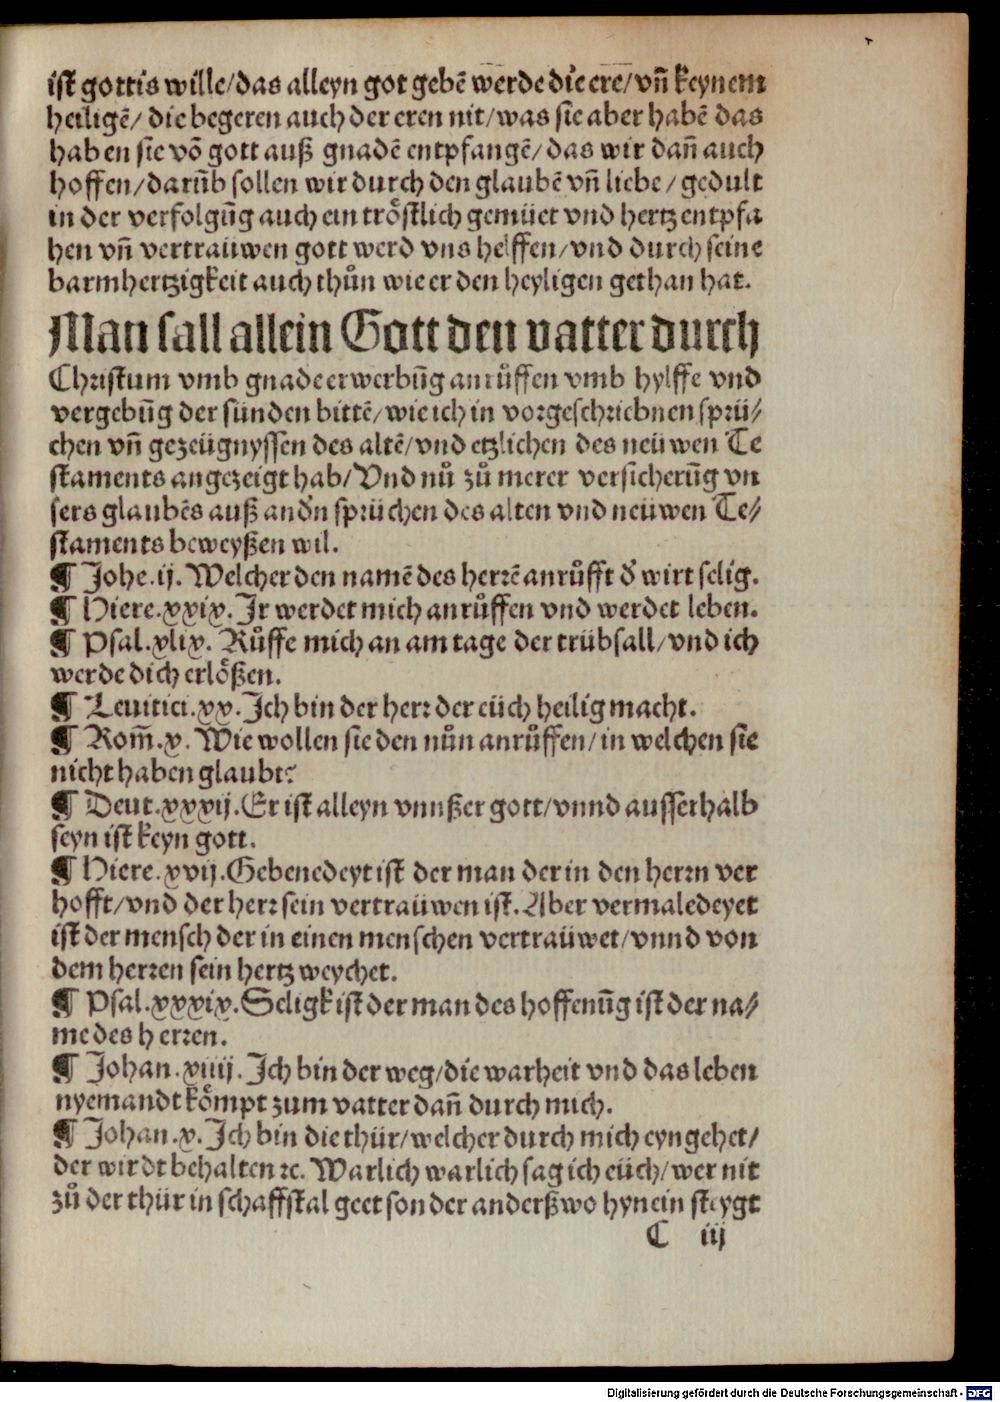 ist gottis wille/das alleyn got gebē werde die ere/vñ keynem
heiligē/ die begeren auch der eren nit/was sie aber habē das
haben sie võ gott auß gnadē entpfangē/das wir dañ auch
hoffen/darūb sollen wir durch den glaubē vñ liebe/gedult
in der verfolgūg auch ein tröstlich gemüet vnd hertz entpfa
hen vñ vertraüwen gott werd vns helffen/vnd durch seine
barmhertzigkeit auch thůn wie er den heyligen gethan hat.
Man sall allein Gott den vatter durch
Christum vmb gnade erwerbūg anrůffen vmb hylffe vnd
vergebūg der sünden bittē/wie ich in vorgeschriebnen sprü/
chen vñ gezeügnyssen des altē/vnd etzlichen des neüwen Te
staments angezeigt hab/Vnd nů zů merer versicherūg vn
sers glaubēs auß andn̄ sprüchen des alten vnd neüwen Te/
staments beweyßen wil.
¶ Johe.ij. Welcher den namē des herrē anrůfft d' wirt selig.
¶ Hiere.xxix. Ir werdet mich anrůffen vnd werdet leben.
¶ Psal.xlix. Růffe mich an am tage der trübsall/vnd ich
werde dich erlößen.
¶ Leuitici.xx. Ich bin der herr der eüch heilig macht.
¶ Rom̄.x. Wie wollen sie den nůn anrůffen/in welchen sie
nicht haben glaubt?
¶ Deut.xxxij. Er ist alleyn vnnßer gott/vnnd ausserhalb
seyn ist keyn gott.
¶ Hiere.xvij. Gebenedeyt ist der man der in den herrn ver
hofft/vnd der herr sein vertraüwen ist. Aber vermaledeyet
ist der mensch der in einen menschen vertraüwet/vnnd von
dem herren sein hertz weychet.
¶ Psal.xxxix. Seligk ist der man des hoffenūg ist der na/
me des herren.
¶ Johan.xiiij. Ich bin der weg/die warheit vnd das leben
nyemandt kömpt zum vatter dañ durch mich.
¶ Johan.x. Ich bin die thür/welcher durch mich eyngehet/
der wirdt behalten ꝛc. Warlich warlich sag ich eüch/wer nit
zů der thür in schaffstal geet sonder anderßwo hynein steygt
C iij
Digitalisierung gefördert durch die Deutsche Forschungsgemeinschaft - DFG